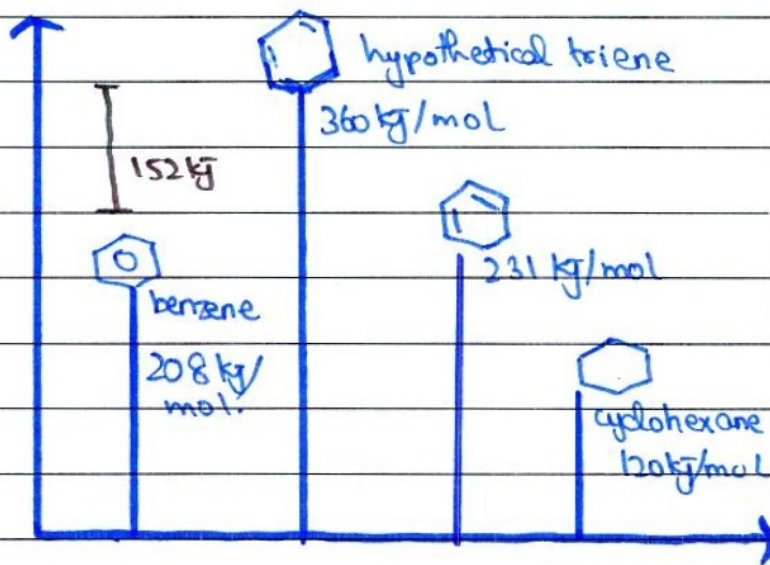 hypothetical triene
360 kJ/mol
152 kJ
231 kJ/mol
benzene
208 kJ/
mol.
cyclohexane
120 kJ/mol